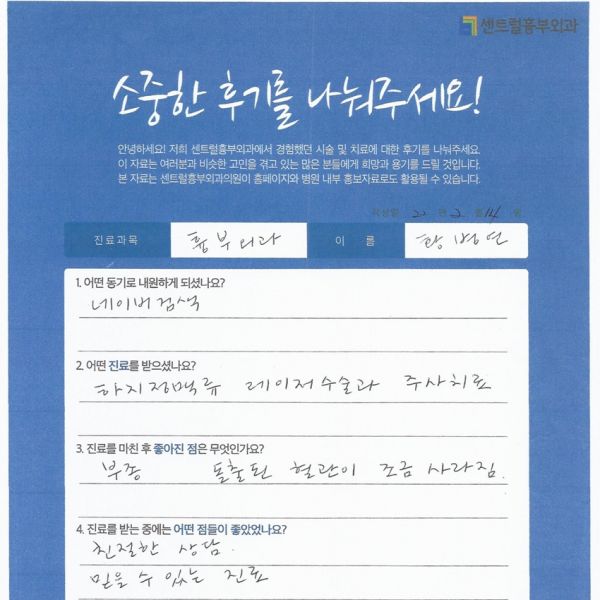 센트럴흉부외과
소중한 후기를 나눠주세요!
안녕하세요! 저희 센트럴흉부외과에서 경험했던 시술 및 치료에 대한 후기를 나눠주세요.
이 자료는 여러분과 비슷한 고민을 겪고 있는 많은 분들에게 희망과 용기를 드릴 것입니다.
본 자료는 센트럴흉부외과의원이 홈페이지와 병원 내부 홍보자료로도 활용될 수 있습니다.
작성일 22 년 2 월 14 일
진료과목 흉부외과 이 름
1. 어떤 동기로 내원하게 되셨나요?
네이버 검색
2. 어떤 진료를 받으셨나요?
하지정맥류 레이저수술과 주사치료
3. 진료를 마친 후 좋아진 점은 무엇인가요?
부종 돌출된 혈관이 조금 사라짐.
4. 진료를 받는 중에는 어떤 점들이 좋았었나요?
친절한 상담.
믿을 수 있는 진료